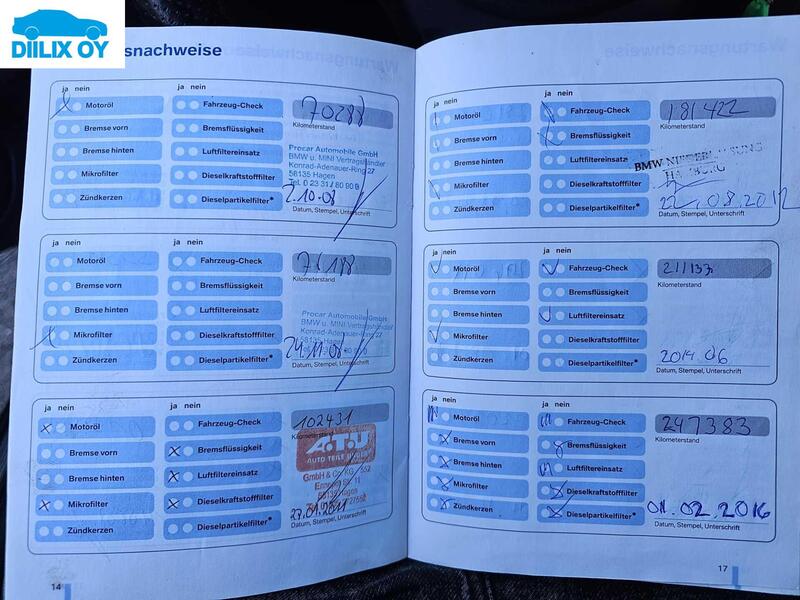 DIILIX OY
snachweise
ja nein
ja nein
Motoröl
Fahrzeug-Check
70288
Kilometerstand
Bremse vorn
Bremsflüssigkeit
Bremse hinten
Luftfiltereinsatz
Mikrofilter
Dieselkraftstofffilter
Zündkerzen
Dieselpartikelfilter*
Procar Automobile GmbH
BMW u. MINI Vertragshändler
Konrad-Adenauer-Ring 27
58135 Hagen
Tel. 0 23 31 / 80 90 0
2.10.08
Datum, Stempel, Unterschrift
ja nein
ja nein
Motoröl
Fahrzeug-Check
Kilometerstand
Bremse vorn
Bremsflüssigkeit
Bremse hinten
Luftfiltereinsatz
Mikrofilter
Dieselkraftstofffilter
Zündkerzen
Dieselpartikelfilter*
Procar Automobile GmbH
BMW u. MINI Vertragshändler
Konrad-Adenauer-Ring 27
58135 Hagen
24.11.08
Datum, Stempel, Unterschrift
ja nein
ja nein
Motoröl
Fahrzeug-Check
102431
Bremse vorn
Bremsflüssigkeit
Bremse hinten
Luftfiltereinsatz
Mikrofilter
Dieselkraftstofffilter
Zündkerzen
Dieselpartikelfilter*
A.T.U
AUTO TEILE
GmbH & Co. KG
Hagen
27.01.2011
Datum, Stempel, Unterschrift
14
ja nein
ja nein
Motoröl
Fahrzeug-Check
181422
Kilometerstand
Bremse vorn
Bremsflüssigkeit
Bremse hinten
Luftfiltereinsatz
Mikrofilter
Dieselkraftstofffilter
Zündkerzen
Dieselpartikelfilter*
BMW NIEDERLASSUNG
HAMBURG
22.08.2012
Datum, Stempel, Unterschrift
ja nein
ja nein
Motoröl
Fahrzeug-Check
211133
Kilometerstand
Bremse vorn
Bremsflüssigkeit
Bremse hinten
Luftfiltereinsatz
Mikrofilter
Dieselkraftstofffilter
Zündkerzen
Dieselpartikelfilter*
2014.06
Datum, Stempel, Unterschrift
ja nein
ja nein
Motoröl
Fahrzeug-Check
247383
Kilometerstand
Bremse vorn
Bremsflüssigkeit
Bremse hinten
Luftfiltereinsatz
Mikrofilter
Dieselkraftstofffilter
Zündkerzen
Dieselpartikelfilter*
01.02.2016
Datum, Stempel, Unterschrift
17